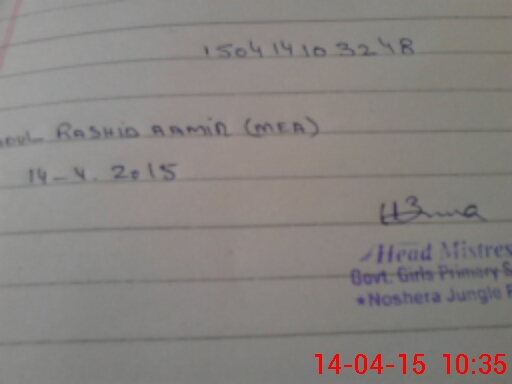 150414103248
RASHID AAMIR (MEA)
14-4.2015
Head Mistres
Govt. Girls Primary S
Noshera Jungle
14-04-15 10:35